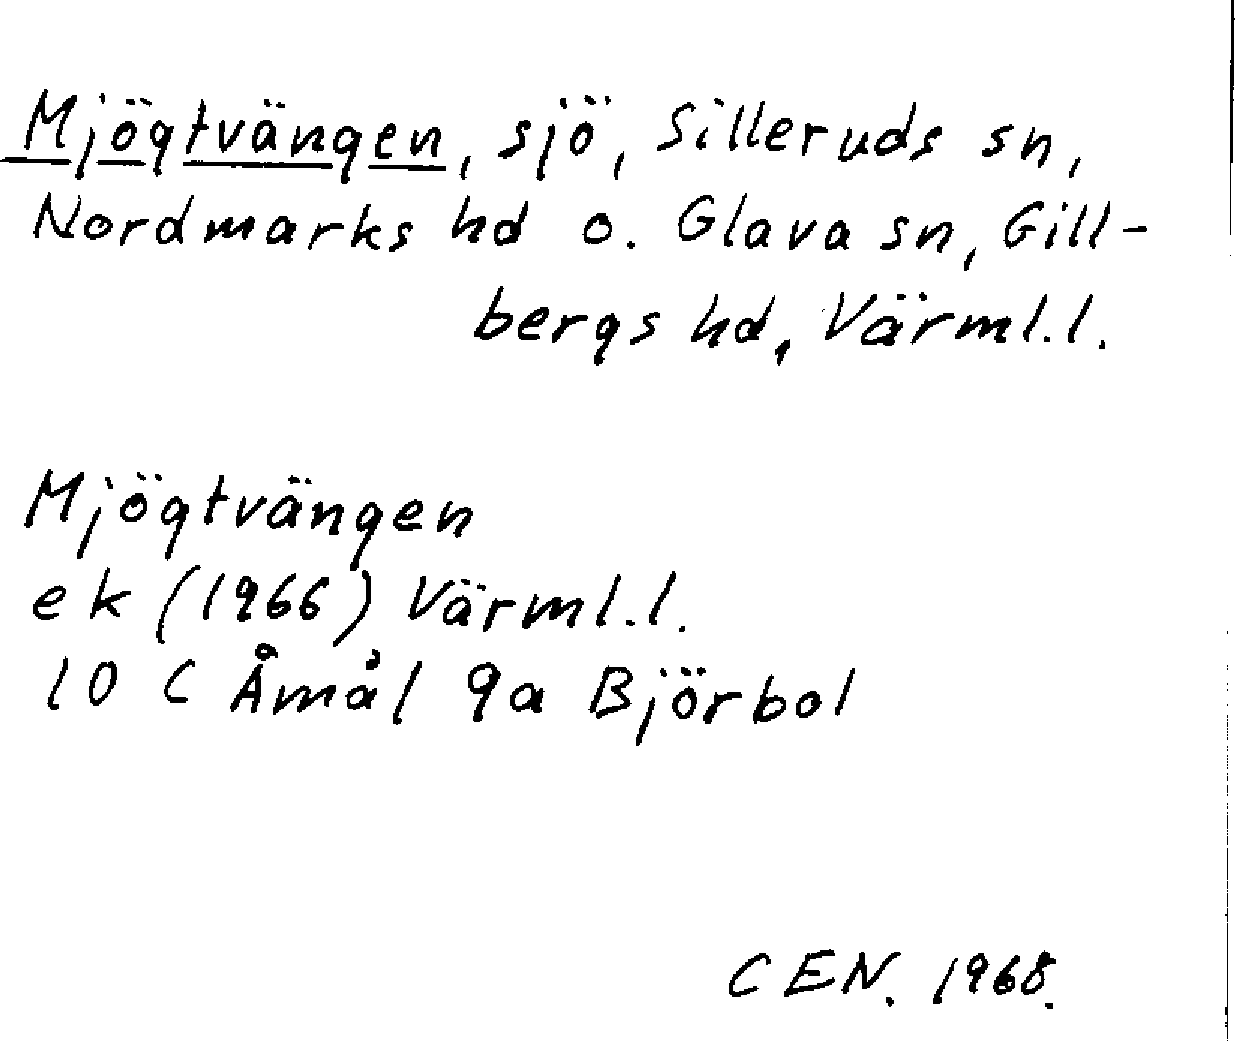 Mjögtvängen, sjö, Silleruds sn,
Nordmarks hd o. Glava sn, Gill-
bergs hd, Värml.l.
Mjögtvängen
ek (1966) Värml.l.
10 C Åmål 9a Björbol
CEN. 1968.